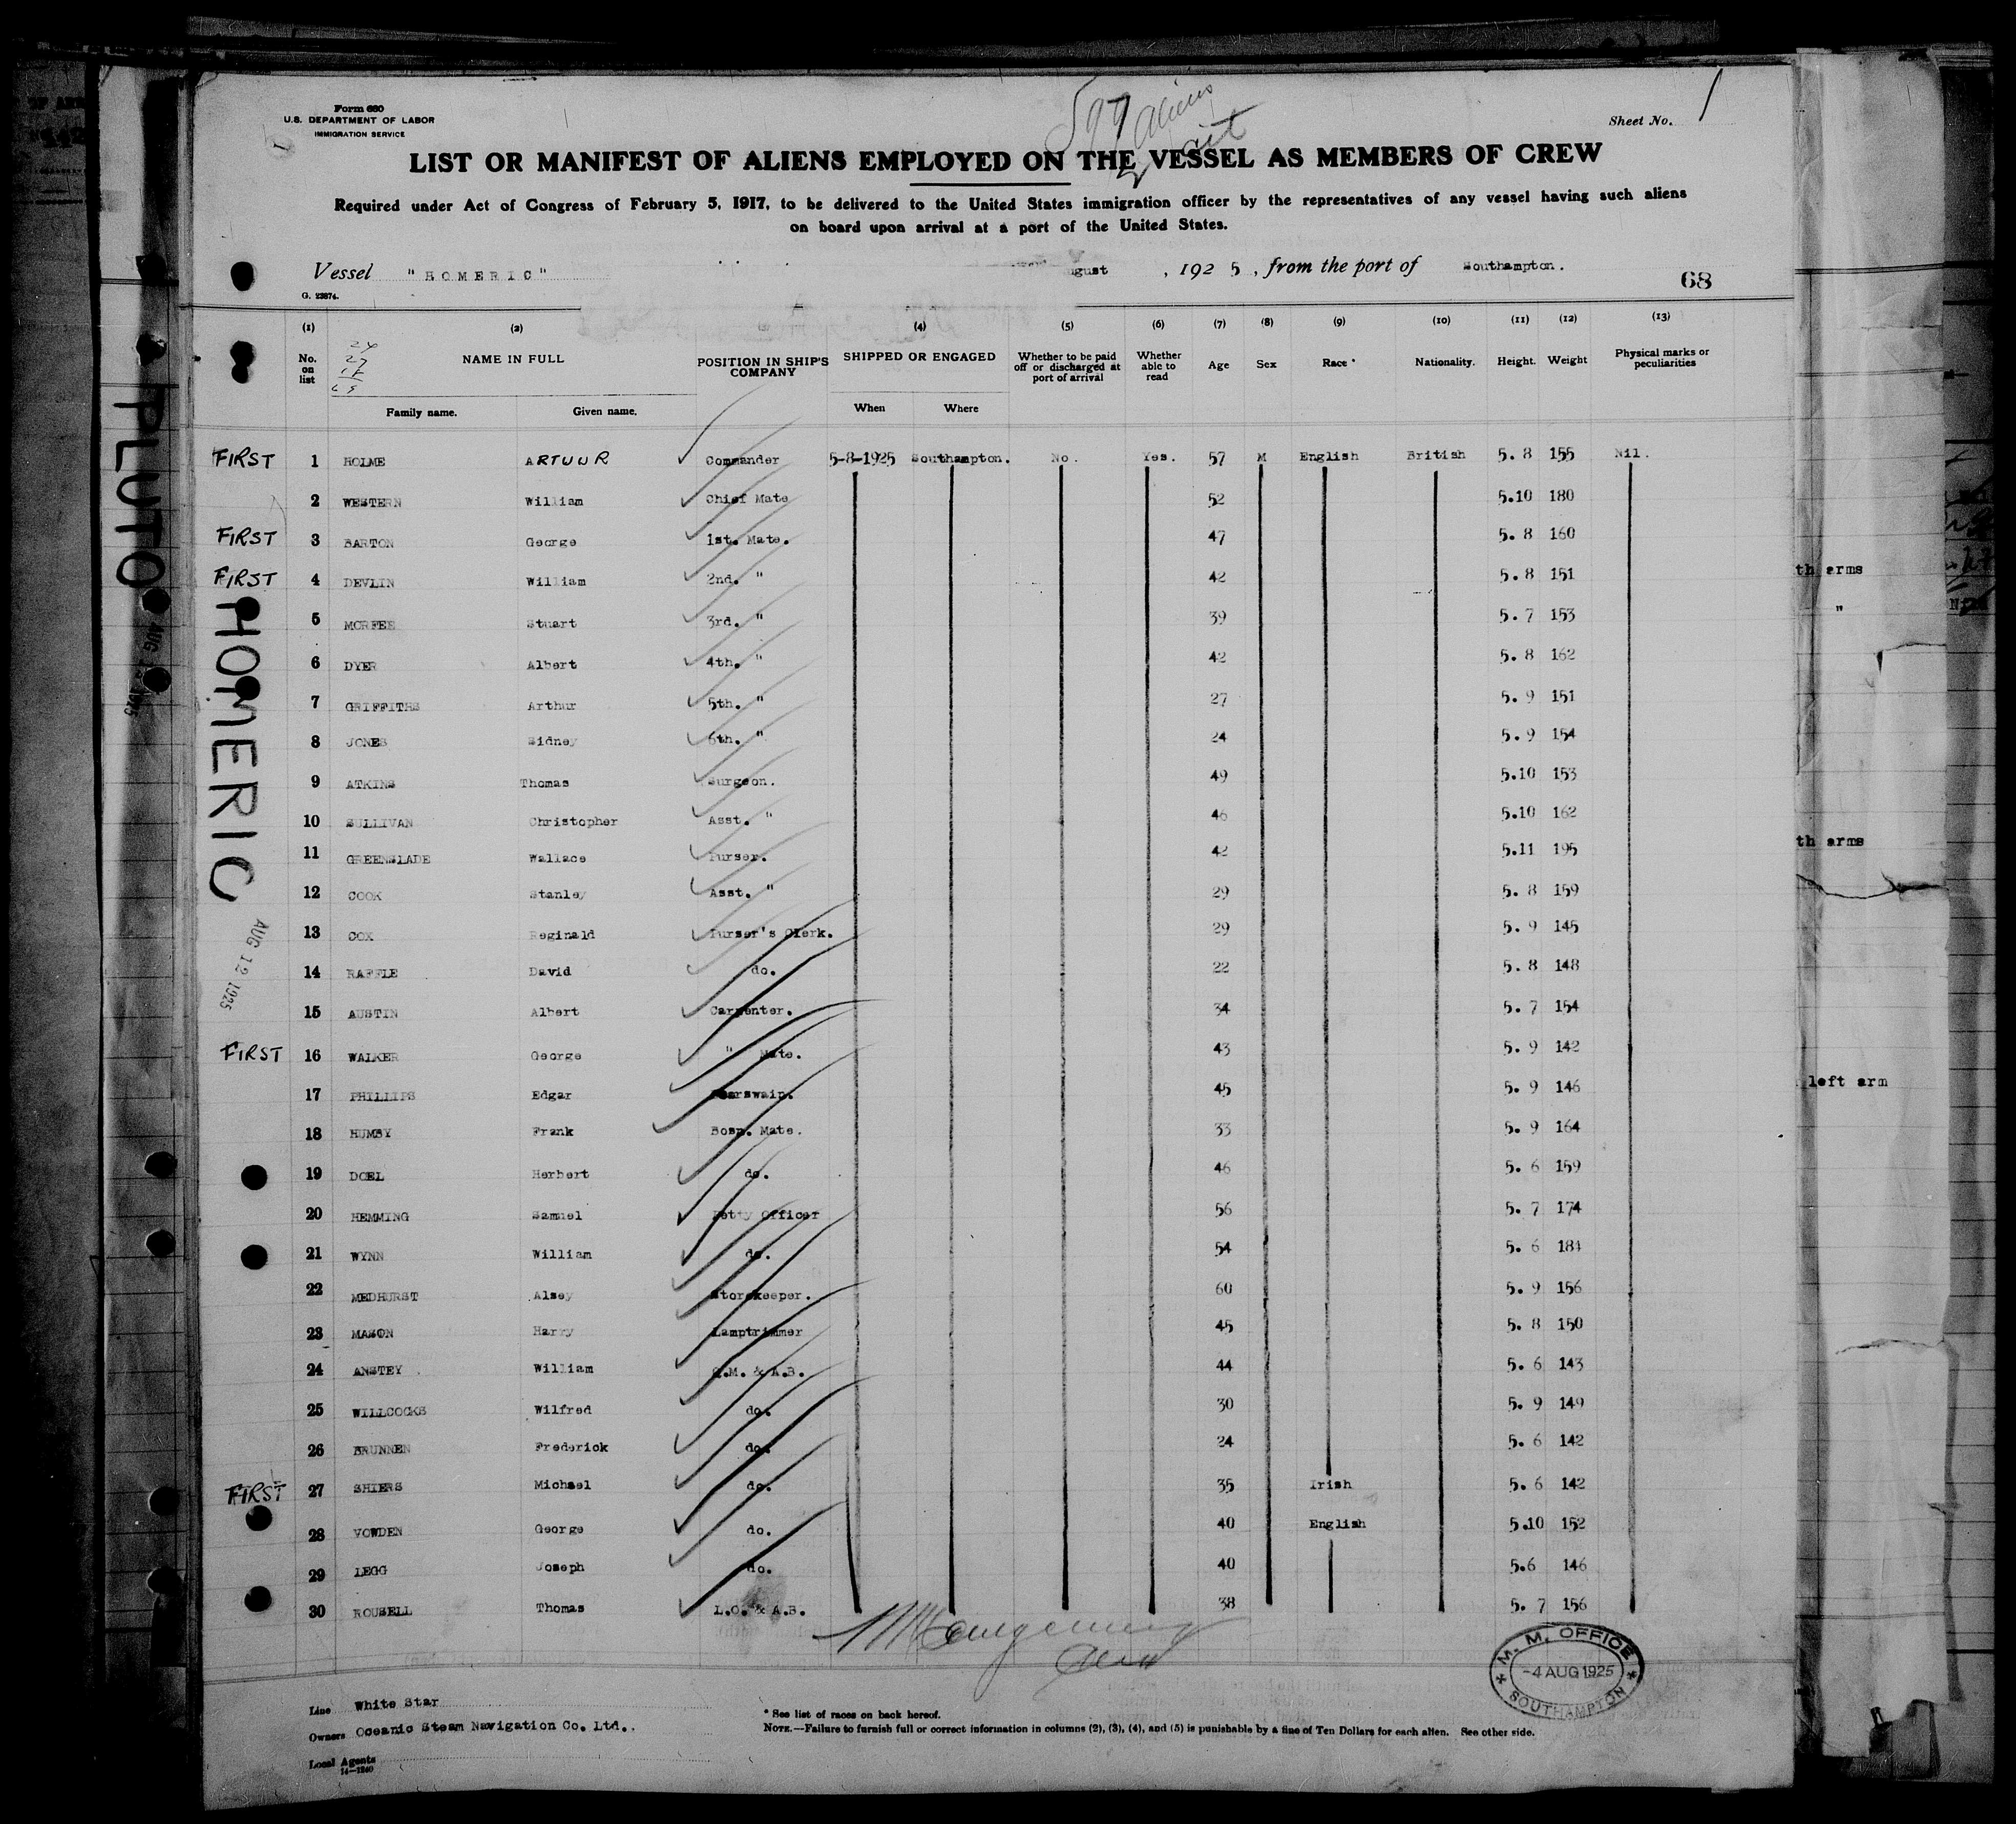 Form 680
U.S. DEPARTMENT OF LABOR
IMMIGRATION SERVICE
599 aliens
Sheet No. 1
LIST OR MANIFEST OF ALIENS EMPLOYED ON THE VESSEL AS MEMBERS OF CREW
Required under Act of Congress of February 5, 1917, to be delivered to the United States immigration officer by the representatives of any vessel having such aliens
on board upon arrival at a port of the United States.
Vessel "HOMERIC" ugust , 192 5 , from the port of Southampton.
68
G. 23874.
(1) (2) (4) (5) (6) (7) (8) (9) (10) (11) (12) (13)
No. on list NAME IN FULL POSITION IN SHIP'S COMPANY SHIPPED OR ENGAGED Whether to be paid off or discharged at port of arrival Whether able to read Age Sex Race * Nationality. Height. Weight Physical marks or peculiarities
Family name. Given name. When Where
FIRST 1 HOLME ARTUUR Commander 5-8-1925 Southampton. No. Yes. 57 M English British 5. 8 155 Nil.
2 WESTERN William Chief Mate 52 5.10 180
FIRST 3 BARTON George 1st. Mate. 47 5. 8 160
FIRST 4 DEVLIN William 2nd. " 42 5. 8 151
5 MCRFEE Stuart 3rd. " 39 5. 7 153
6 DYER Albert 4th. " 42 5. 8 162
7 GRIFFITHS Arthur 5th. " 27 5. 9 151
8 JONES Sidney 6th. " 24 5. 9 154
9 ATKINS Thomas Surgeon. 49 5.10 153
10 SULLIVAN Christopher Asst. " 46 5.10 162
11 GREENSLADE Wallace Purser. 42 5.11 195
12 COOK Stanley Asst. " 29 5. 8 159
13 COX Reginald Purser's Clerk. 29 5. 9 145
14 RAFFLE David do. 22 5. 8 148
15 AUSTIN Albert Carpenter. 34 5. 7 154
FIRST 16 WALKER George " Mate. 43 5. 9 142
17 PHILLIPS Edgar 45 5. 9 146
18 HUMBY Frank Bosn. Mate. 33 5. 9 164
19 DOEL Herbert do. 46 5. 6 159
20 HEMMING Samuel Petty Officer 56 5. 7 174
21 WYNN William do. 54 5. 6 184
22 MEDHURST Alsey Storekeeper. 60 5. 9 156
23 MASON Harry Lamptrimmer 45 5. 8 150
24 ANSTEY William Q.M. & A.B. 44 5. 6 143
25 WILLCOCKS Wilfred do. 30 5. 9 149
26 BRUNNEN Frederick do. 24 5. 6 142
FIRST 27 SHIERS Michael do. 35 Irish 5. 6 142
28 VOWDEN George do. 40 English 5.10 152
29 LEGG Joseph do. 40 5.6 146
30 ROUSELL Thomas L.O. & A.B. 38 5. 7 156
M. M. OFFICE
-4 AUG 1925
SOUTHAMPTON
Line White Star
Owners Oceanic Steam Navigation Co. Ltd..
Local Agents
14—1240
* See list of races on back hereof.
NOTE.—Failure to furnish full or correct information in columns (2), (3), (4), and (5) is punishable by a fine of Ten Dollars for each alien. See other side.
PLUTO
HOMERIC
AUG 12 1925
th arms
"
th arms
left arm